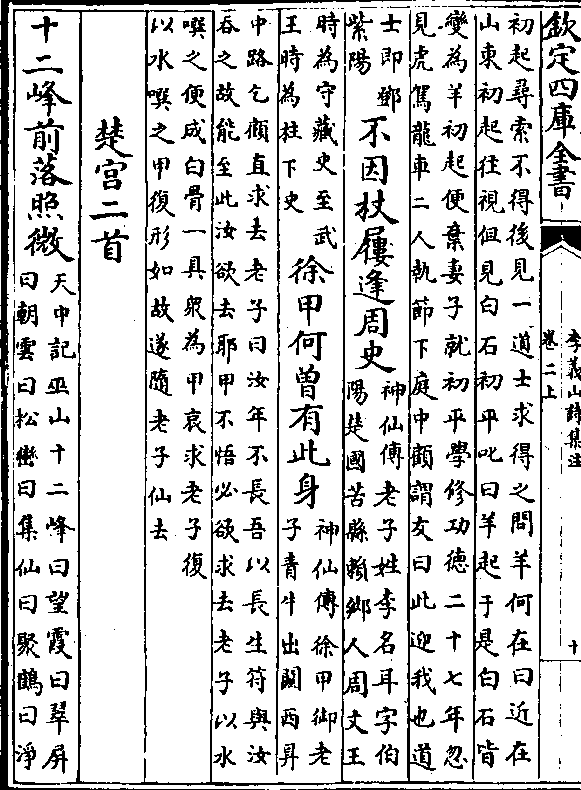 欽定四庫全書
李義山詩集注
卷二上
十
初起尋索不得後見一道士求得之問羊何在曰近在
山東初起往視但見白石初平叱曰羊起于是白石皆
變為羊初起便棄妻子就初平學修功德二十七年忽
見虎駕龍車二人執節下庭中顧謂友曰此迎我也道
士即鄧
紫陽
不因杖屨逢周史
神仙傳老子姓李名耳字伯
陽楚國苦縣賴鄉人周文王
時為守藏史至武
王時為柱下史
徐甲何曾有此身
神仙傳徐甲御老
子青牛出關西昇
中路乞顧直求去老子曰汝年不長吾以長生符與汝
吞之故能至此汝欲去耶甲不悟必欲求去老子以水
噀之便成白骨一具衆為甲哀求老子復
以水噀之甲復形如故遂隨老子仙去
楚宫二首
十二峰前落照微
天中記巫山十二峰曰望霞曰翠屏
曰朝雲曰松巒曰集仙曰聚鶴曰淨